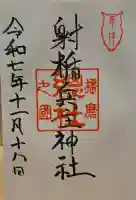 奉拝
射楯兵主神社
播磨
之国
令和七年十一月十八日